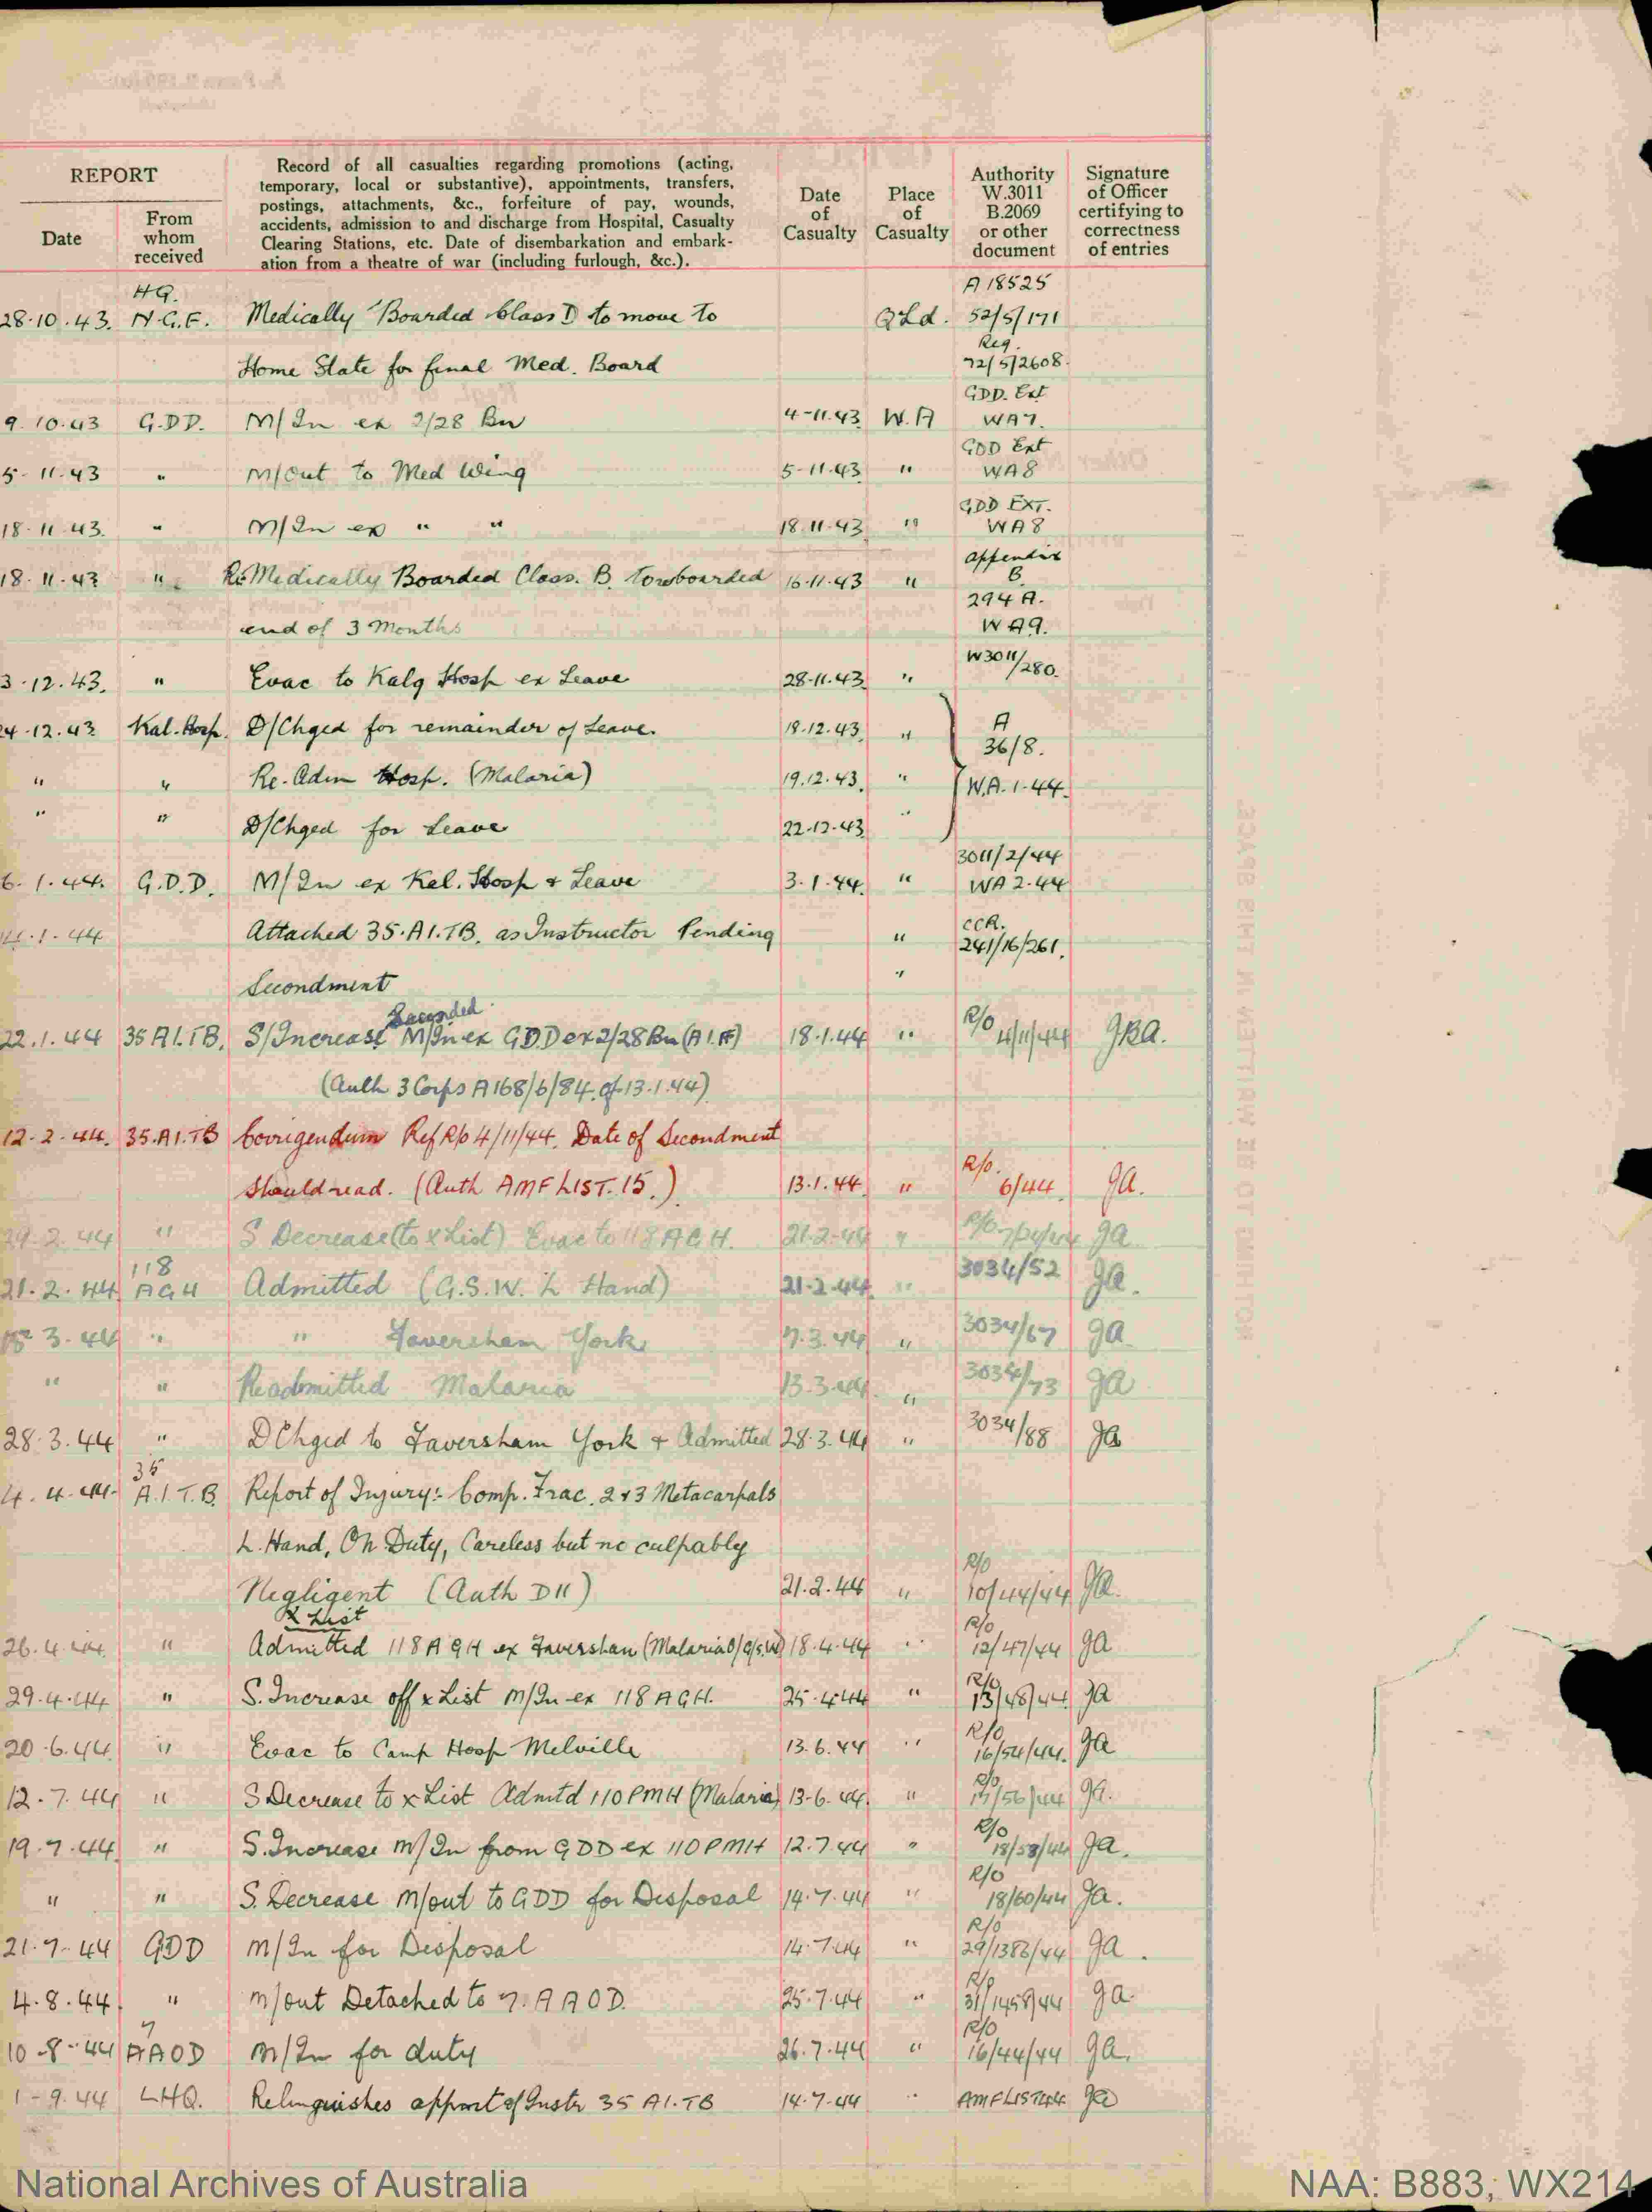 REPORT
Date
From whom received
Record of all casualties regarding promotions (acting,
temporary, local or substantive), appointments, transfers,
postings, attachments, &c., forfeiture of pay, wounds,
accidents, admission to and discharge from Hospital, Casualty
Clearing Stations, etc. Date of disembarkation and embark-
ation from a theatre of war (including furlough, &c.).
Date of Casualty
Place of Casualty
Authority W.3011 B.2069 or other document
Signature of Officer certifying to correctness of entries
HQ. A 18525
28.10.43. N.G.F. Medically Boarded Class D to move to Qld. 52/5/171
Reg.
Home State for final Med. Board 72/5/2608.
GDD. Ext
9.10.43 G.DD. M/In ex 2/28 Bn 4-11.43 W.A WA7.
GDD Ext
5-11.43 " M/Out to Med Wing 5-11.43 " WA8
GDD EXT.
18-11-43. " M/In ex " " 18.11.43 " WA8
Appendix
18-11-43 " Re Medically Boarded Class. B. to reboarded 16.11.43 " B.
294 A.
end of 3 Months WA9.
3-12.43. " Evac to Kalg Hosp ex Leave 28-11.43 " W3011/280.
24-12.43 Kal. Hosp. D/Chged for remainder of Leave. 18.12.43 " A 36/8.
" " Re. Adm Hosp. (Malaria) 19.12.43. " W.A. 1.44.
" " D/Chged for Leave 22-12-43 "
3011/2/44
6.1.44. G.D.D. M/In ex Kal. Hosp & Leave 3.1.44. " WA 2.44
CCR.
1.44 Attached 35.A.I.T.B. as Instructor Pending " 241/16/261.
Secondment "
Seconded
22.1.44 35 A.I.T.B. S/Increase M/In ex G.D.D ex 2/28 Bn (A.I.F) 18.1.44 " R/O 4/11/44 JRA.
(Auth 3 Corps A168/6/84. of 13.1.44)
12.2.44. 35.A.I.T.B Corrigendum Ref R/o 4/11/44. Date of Secondment
Should read. (Auth AMF LIST. 15.) 13.1.44 " R/o. 6/44. JA.
29.2.44 " S Decrease (to X List) Evac to 118 AGH. 21-2-44 " R/O JA
118
21.2.44 AGH Admitted (G.S.W. L Hand) 21-2-44 " 3034/52 JA.
3.44 " " Faversham York 7.3.44 " 3034/67 JA
" " Readmitted Malaria 13.3.44. " 3034/73 JA
28.3.44 " D Chged to Faversham York & Admitted 28.3.44 " 3034/88 JA
35
4.4.44. A.I.T.B. Report of Injury:- Comp. Frac. 2 & 3 Metacarpals
L. Hand, On Duty, Careless but no culpably
Negligent (Auth D11) 21.2.44 " R/O 10/44/44 JA.
X List
26.4.44 " Admitted 118 AGH ex Faversham (Malaria O/G.S.W) 18.4.44 " R/O 12/47/44 JA
29.4.44 " S. Increase off x List M/In ex 118 AGH. 25.4.44 " R/O 13/48/44 JA
20.6.44 " Evac to Camp Hosp Melville 13.6.44 " R/O 16/54/44. JA
12.7.44 " S Decrease to x List Admtd 110 PMH (Malaria) 13-6-44. " R/O 17/56/44 JA.
19.7.44 " S. Increase M/In from GDD ex 110 PMH 12.7.44 " R/O 18/58/44 JA.
" " S. Decrease M/out to GDD for Disposal 14.7.44 " R/O 18/60/44 JA.
21.7.44 GDD M/In for Disposal 14.7.44 " R/O 29/1386/44 JA.
4.8.44 " M/out Detached to 7. AAOD. 25.7.44 " R/O 31/1458/44 JA
7
10-8-44 AAOD M/In for duty 26.7.44 " R/O 16/44/44 JA.
1-9.44 LHQ. Relinquishes appmt of Instr 35 A.I.TB 14.7.44 " AMF LIST 44 JA
NOTHING TO BE WRITTEN IN THIS SPACE
National Archives of Australia
NAA: B883, WX214